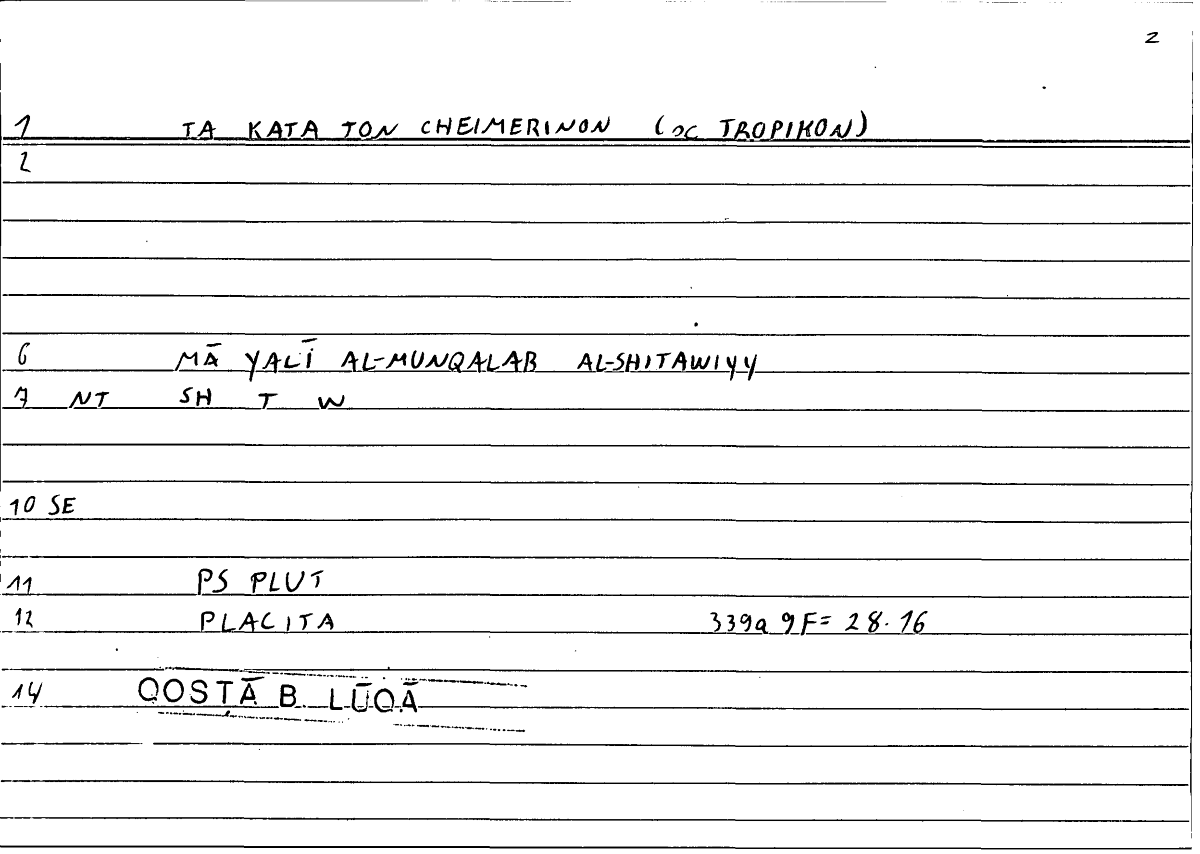 2
1 TA KATA TON CHEIMERINON (SC TROPIKON)
2
6 MĀ YALĪ AL-MUNQALAB AL-SHITAWIYY
7 NT SH T W
10 SE
11 PS PLUT
12 PLACITA 339a 9F= 28.16
14 QOSṬĀ B. LŪQĀ